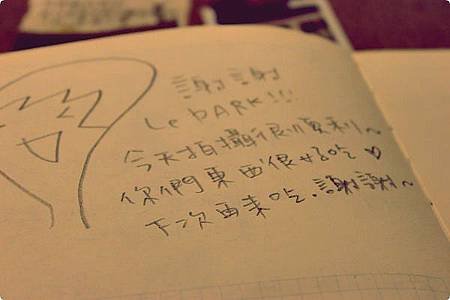 謝謝
Le PARK!!!
今天拍攝很順利~
你們東西很好吃♡
下次再來吃.謝謝~